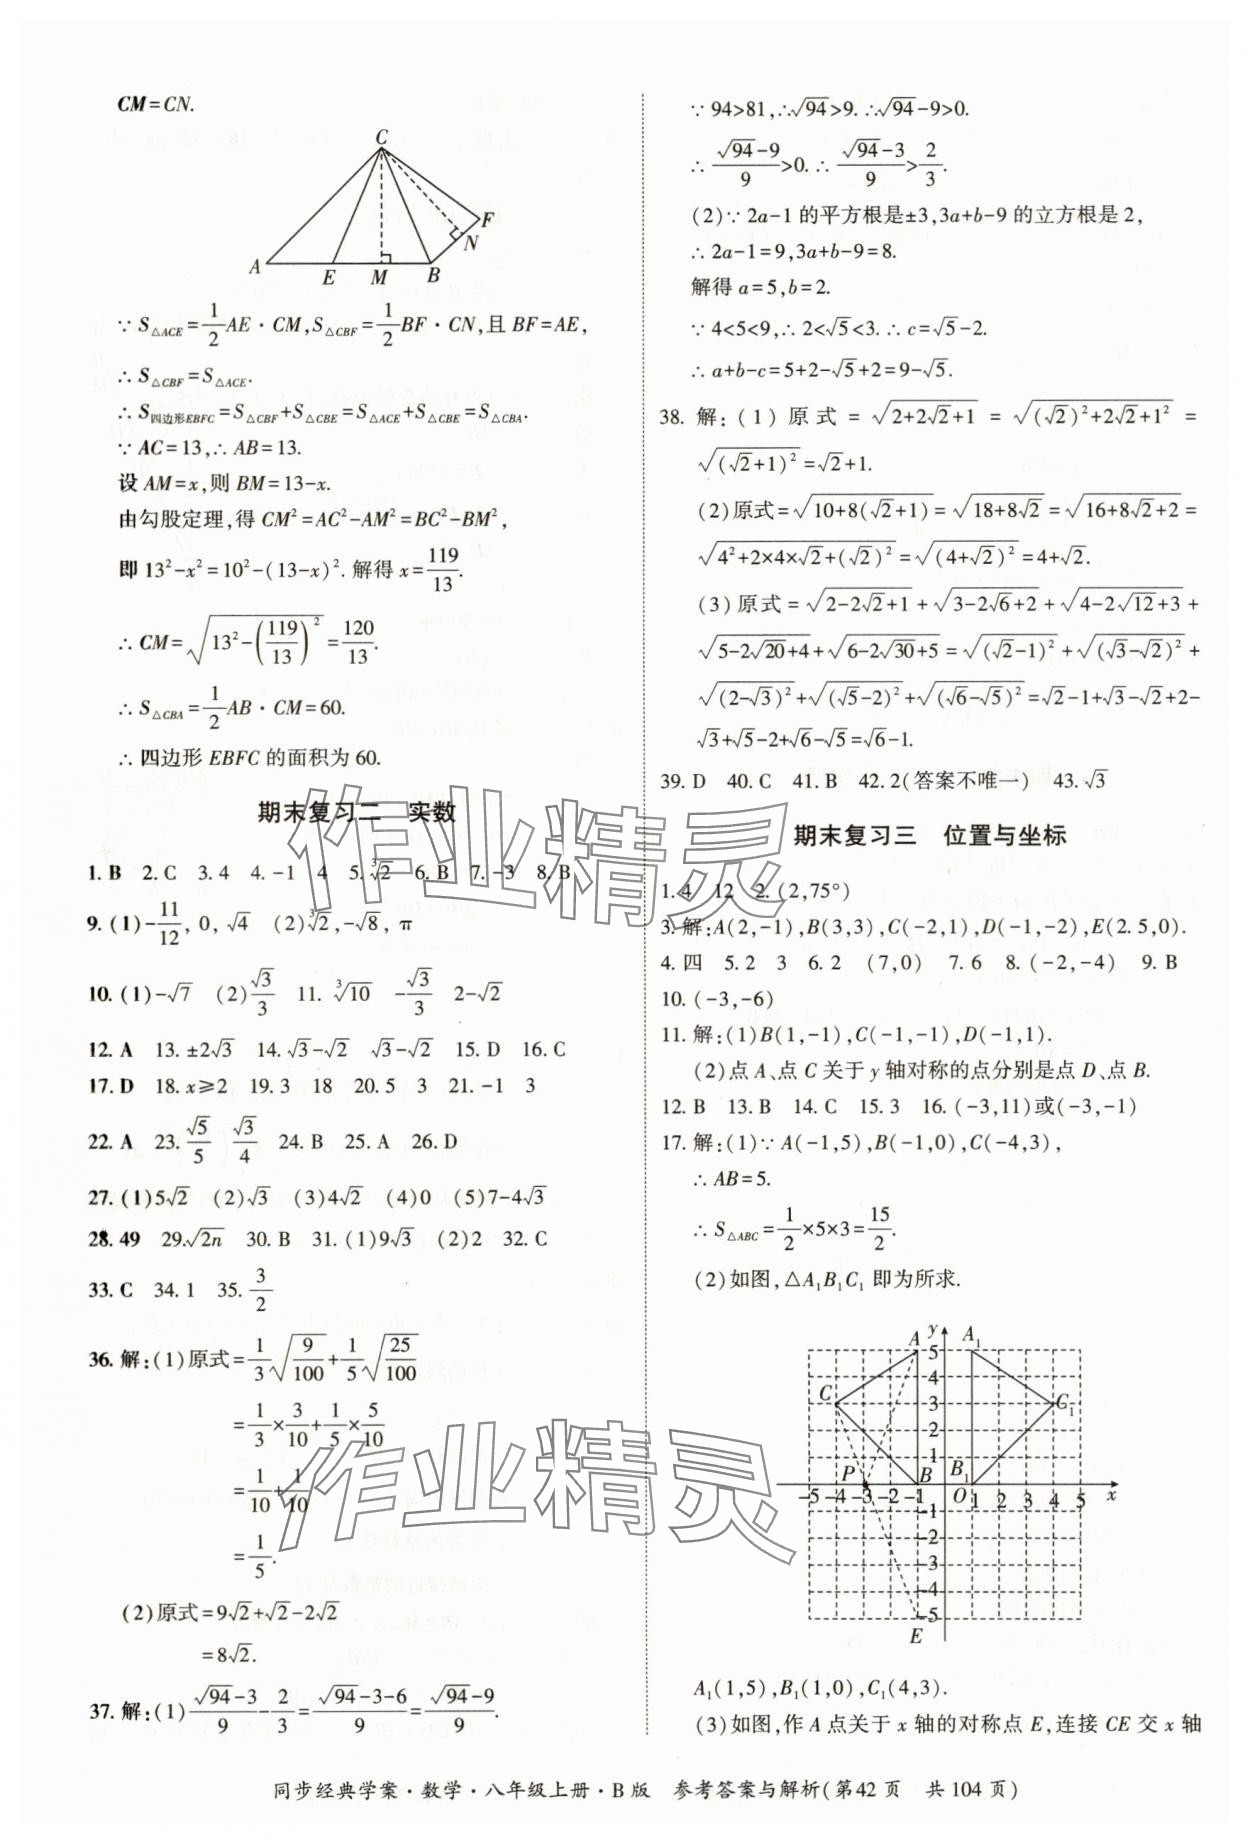 CM=CN.
C
F
N
A E M B
∵ S△ACE=1/2AE·CM,S△CBF=1/2BF·CN,且BF=AE,
∴ S△CBF=S△ACE.
∴ S四边形EBFC=S△CBF+S△CBE=S△ACE+S△CBE=S△CBA.
∵ AC=13,∴ AB=13.
设AM=x,则BM=13-x.
由勾股定理,得CM²=AC²-AM²=BC²-BM²,
即13²-x²=10²-(13-x)².解得x=119/13.
∴ CM=√(13²-(119/13)²)=120/13.
∴ S△CBA=1/2AB·CM=60.
∴ 四边形EBFC的面积为60.
期末复习二 实数
1. B 2. C 3. 4 4. -1 4 5. ∛2 6. B 7. -3 8. B
9. (1)-11/12, 0, √4 (2)∛2,-√8, π
10. (1)-√7 (2)√3/3 11. ∛10 -√3/3 2-√2
12. A 13. ±2√3 14. √3-√2 √3-√2 15. D 16. C
17. D 18. x≥2 19. 3 18 20. 5 3 21. -1 3
22. A 23. √5/5 √3/4 24. B 25. A 26. D
27. (1)5√2 (2)√3 (3)4√2 (4)0 (5)7-4√3
28. 49 29. √2n 30. B 31. (1)9√3 (2)2 32. C
33. C 34. 1 35. 3/2
36. 解:(1)原式=1/3√(9/100)+1/5√(25/100)
=1/3×3/10+1/5×5/10
=1/10+1/10
=1/5.
(2)原式=9√2+√2-2√2
=8√2.
37. 解:(1)(√94-3)/9-2/3=(√94-3-6)/9=(√94-9)/9.
∵ 94>81,∴√94>9.∴√94-9>0.
∴ (√94-9)/9>0.∴ (√94-3)/9>2/3.
(2)∵ 2a-1的平方根是±3,3a+b-9的立方根是2,
∴ 2a-1=9,3a+b-9=8.
解得a=5,b=2.
∵ 4<5<9,∴ 2<√5<3.∴ c=√5-2.
∴ a+b-c=5+2-√5+2=9-√5.
38. 解:(1)原式=√(2+2√2+1)=√((√2)²+2√2+1²)=
√((√2+1)²)=√2+1.
(2)原式=√(10+8(√2+1))=√(18+8√2)=√(16+8√2+2)=
√(4²+2×4×√2+(√2)²)=√((4+√2)²)=4+√2.
(3)原式=√(2-2√2+1)+√(3-2√6+2)+√(4-2√12+3)+
√(5-2√20+4)+√(6-2√30+5)=√((√2-1)²)+√((√3-√2)²)+
√((2-√3)²)+√((√5-2)²)+√((√6-√5)²)=√2-1+√3-√2+2-
√3+√5-2+√6-√5=√6-1.
39. D 40. C 41. B 42. 2(答案不唯一) 43. √3
期末复习三 位置与坐标
1. 4 12 2. (2,75°)
3. 解:A(2,-1),B(3,3),C(-2,1),D(-1,-2),E(2.5,0).
4. 四 5. 2 3 6. 2 (7,0) 7. 6 8. (-2,-4) 9. B
10. (-3,-6)
11. 解:(1)B(1,-1),C(-1,-1),D(-1,1).
(2)点A、点C关于y轴对称的点分别是点D、点B.
12. B 13. B 14. C 15. 3 16. (-3,11)或(-3,-1)
17. 解:(1)∵ A(-1,5),B(-1,0),C(-4,3),
∴ AB=5.
∴ S△ABC=1/2×5×3=15/2.
(2)如图,△A₁B₁C₁即为所求.
A y A₁
5
4
C 3 C₁
2
1
P B B₁
-5 -4 -3 -2 -1 O 1 2 3 4 5 x
-1
-2
-3
-4
-5
E
A₁(1,5),B₁(1,0),C₁(4,3).
(3)如图,作A点关于x轴的对称点E,连接CE交x轴
同步经典学案·数学·八年级上册·B版 参考答案与解析(第42页 共104页)
作业精灵
作业精灵